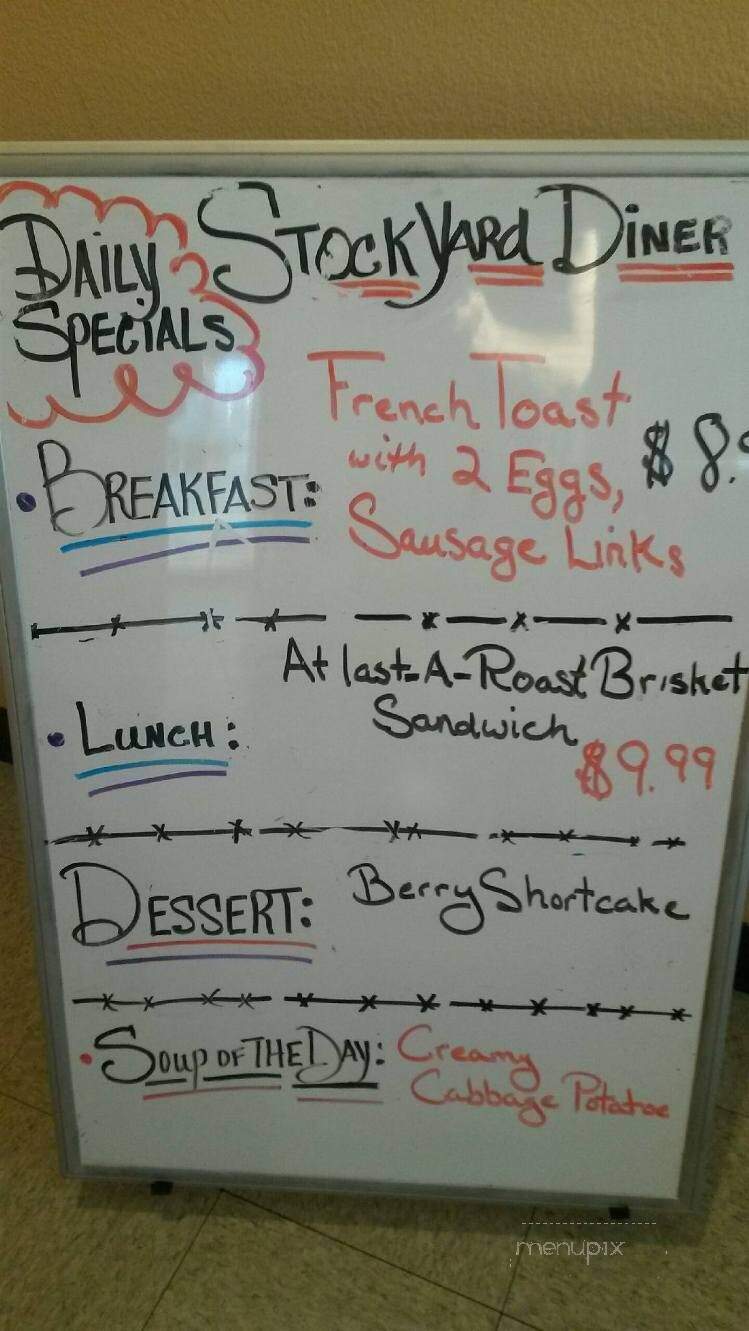 Daily Specials
StockYard Diner
• Breakfast:
French Toast
with 2 Eggs,
Sausage Links
$8.9
• Lunch:
At last-A-Roast Brisket
Sandwich
$9.99
Dessert:
Berry Shortcake
• Soup of the Day:
Creamy
Cabbage Potatoe
menupix